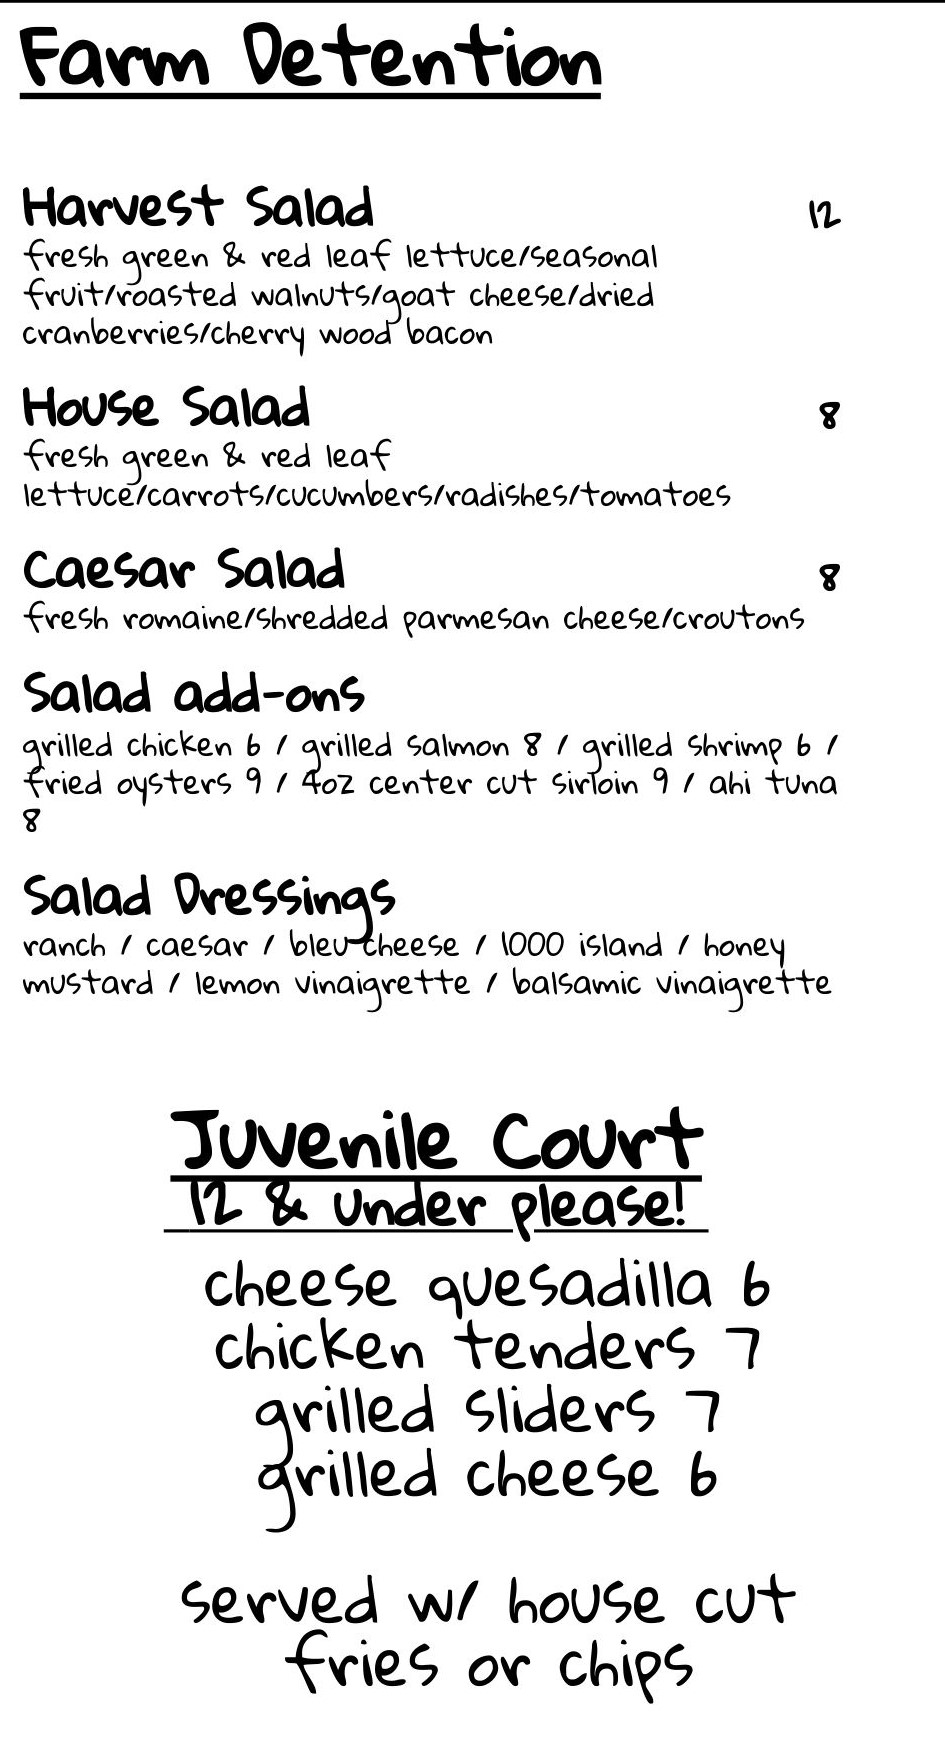 Farm Detention
Harvest Salad 12
fresh green & red leaf lettuce/seasonal
fruit/roasted walnuts/goat cheese/dried
cranberries/cherry wood bacon
House Salad 8
fresh green & red leaf
lettuce/carrots/cucumbers/radishes/tomatoes
Caesar Salad 8
fresh romaine/shredded parmesan cheese/croutons
Salad add-ons
grilled chicken 6 / grilled salmon 8 / grilled shrimp 6 /
fried oysters 9 / 4oz center cut sirloin 9 / ahi tuna
8
Salad Dressings
ranch / caesar / bleu cheese / 1000 island / honey
mustard / lemon vinaigrette / balsamic vinaigrette
Juvenile Court
12 & under please!
cheese quesadilla 6
chicken tenders 7
grilled sliders 7
grilled cheese 6
served w/ house cut
fries or chips